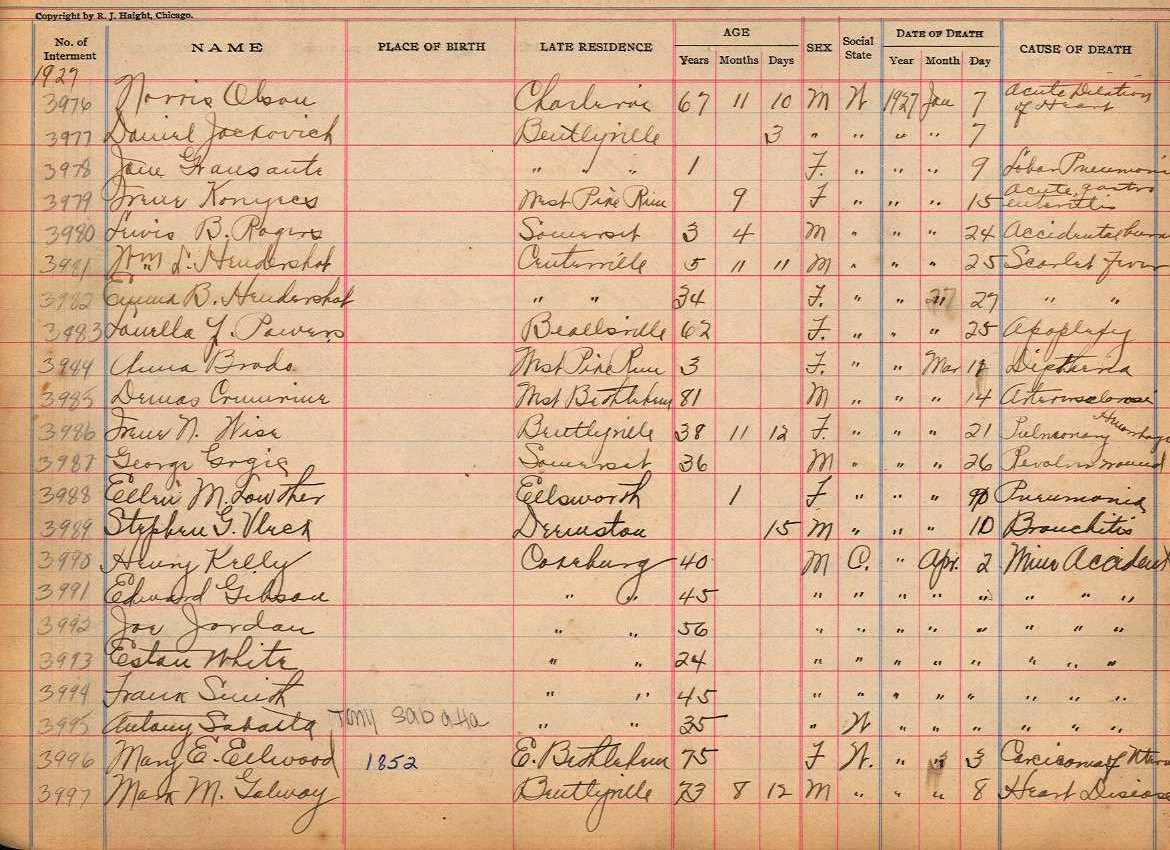 Copyright by R. J. Haight, Chicago.
No. of Interment NAME PLACE OF BIRTH LATE RESIDENCE AGE Years Months Days SEX Social State DATE OF DEATH Year Month Day CAUSE OF DEATH
1927
3976 Norris Olson Charleroi 67 11 10 M W 1927 Jan 7 Acute Dilation of Heart
3977 Daniel Jackovich Bentlyville 3 " " " " 7
3978 Jane Gransante " " " 1 F. " " " 9 Lobar Pneumoni
3979 Irene Konyecs West Pike Run 9 F " " " 15 Acute gastro enteritis
3980 Lewis B. Rogers Somerset 3 4 M " " " 24 Accidental burn
3981 Wm L. Hendershot Centerville 5 11 11 M " " " 25 Scarlet fever
3982 Emma B. Hendershot " " 34 F. " " " 27 " "
3983 Louella J. Powers Beallsville 62 F. " " " 25 Apoplexy
3944 Anna Brado West Pike Run 3 F. " " Mar 11 Diptheria
3985 Demas Crumrine West Bethlehem 81 M " " " 14
3986 Irene N. Wise Bentlyville 38 11 12 F. " " " 21 Pulmonary Hemorrhage
3987 George Somerset 36 M " " " 26 wound
3988 Ellen M. Lowther Ellsworth 1 F " " " Pneumonia
3989 Stephen G. Vleck Deemston 15 M " " " 10 Bronchitis
3990 Henry Kelly Cokeburg 40 M C. " Apr. 2 Mine Accident
3991 Edward Gibson " " 45 " " " " " " " "
3992 Joe Jordan " " 56 " " " " " " " "
3993 Eston White " " 24 " " " " " " " "
3994 Frank Smith " " 45 " " " " " " " "
3995 Antony Sabasta Tony Sabatta " " 35 " W " " " " " "
3996 Mary E. Ellwood 1852 E. Bethlehem 75 F W. " " 3 Carcinoma of Uterus
3997 Mark M. Galway Bentlyville 73 8 12 M " " " 8 Heart Disease